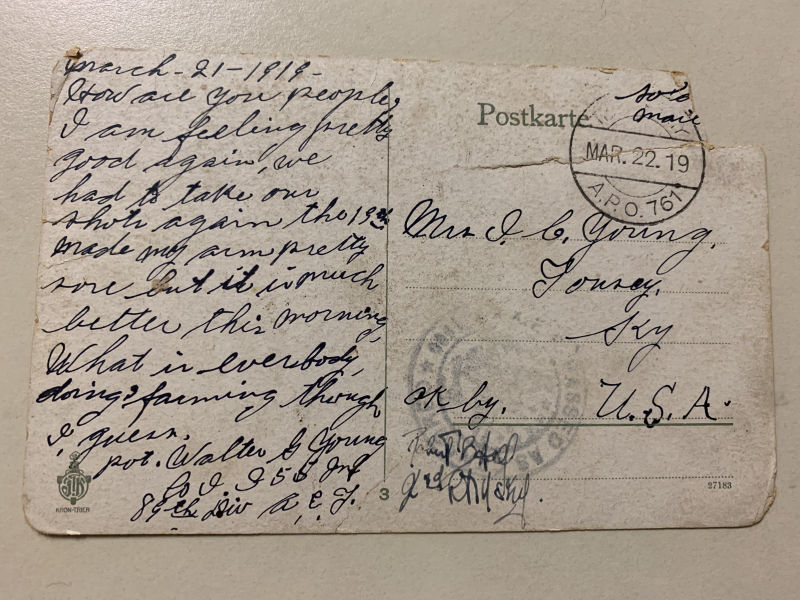 march - 21 - 1919 -
How are you people,
I am feeling pretty
good again, we
had to take our
shots again the 19th
made my arm pretty
sore but it is much
better this morning,
What is everbody,
doing? farming though
I guess.
pvt. Walter G Young
Co I. 355 Inf
89th Div A. E. F.
KRON-TRIER
3
Postkarte
Mail
MAR. 22. 19
A.P.O. 761
Mrs I. C. Young,
Tousey,
Ky
ok by.
U. S. A.
27183